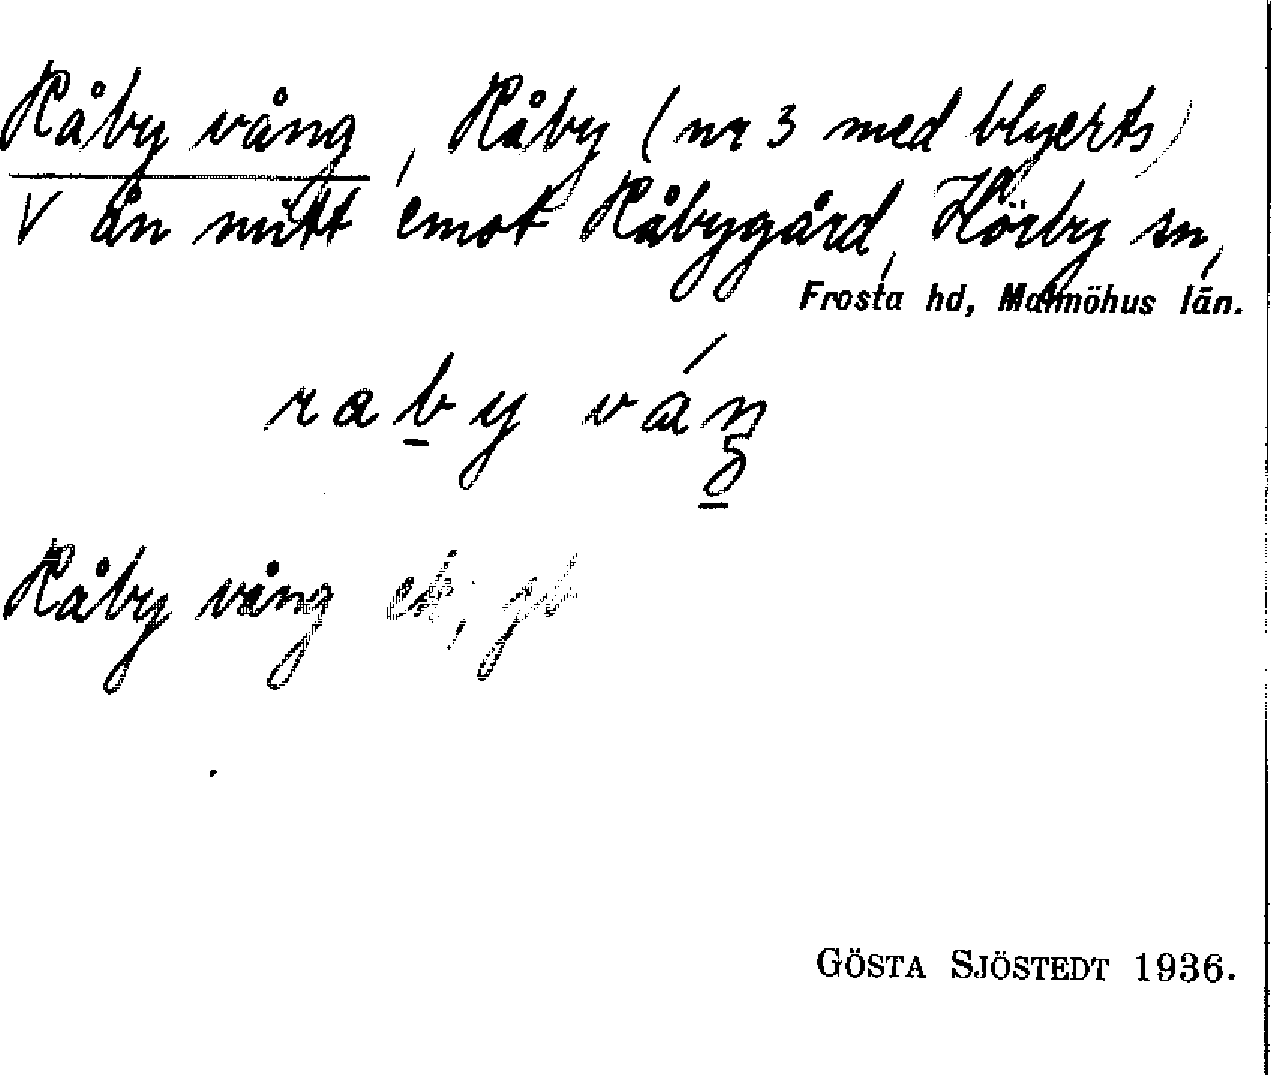 Råby vång, Råby (nr 3 med blyerts)
V ån mitt emot Råbygård, Hörby sn,
Frosta hd, Malmöhus län.
raby váŋ
Råby vång ek, gb
GÖSTA SJÖSTEDT 1936.